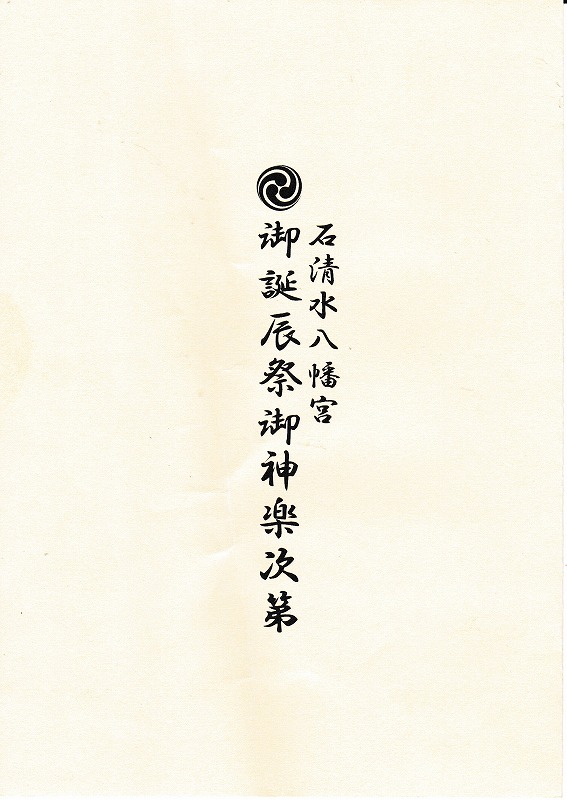 石清水八幡宮
御誕辰祭御神楽次第